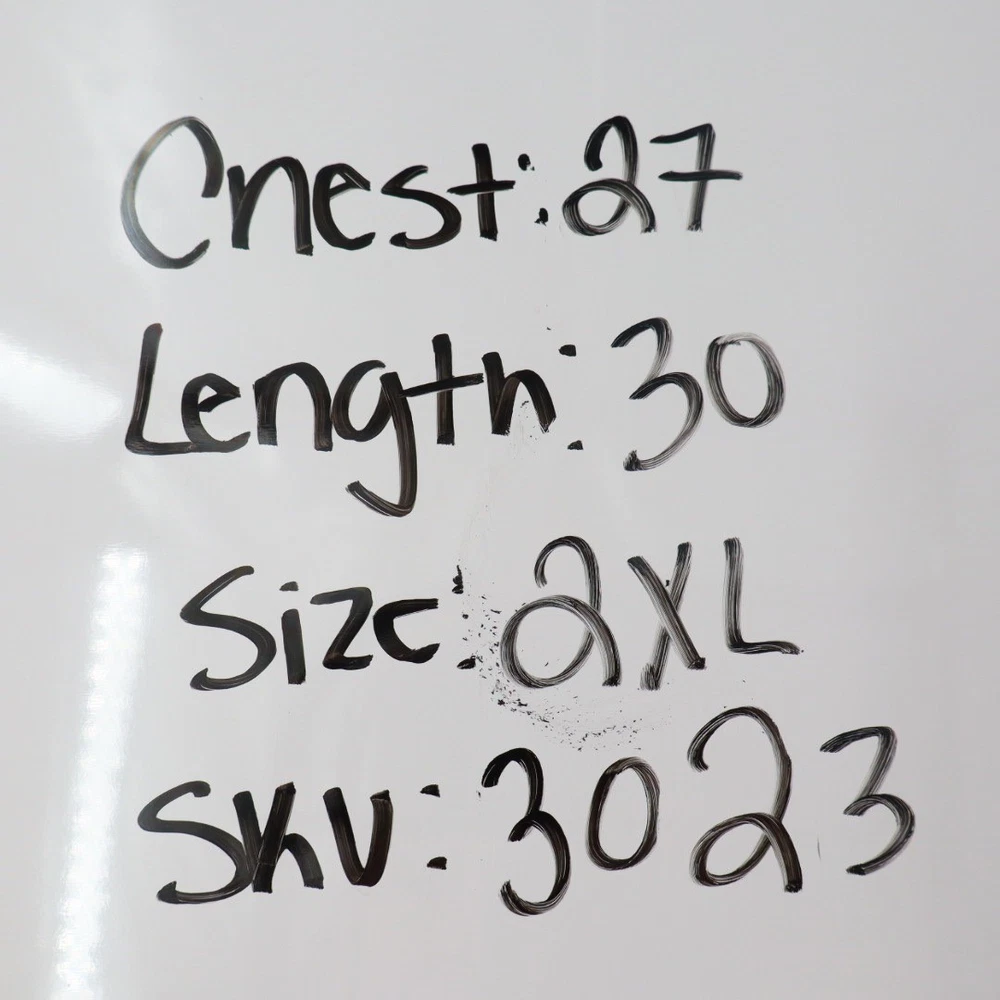 Chest: 27
Length: 30
Size: 2XL
SKU: 3023